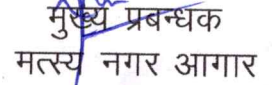 मुख्य प्रबन्धक
मत्स्य नगर आगार